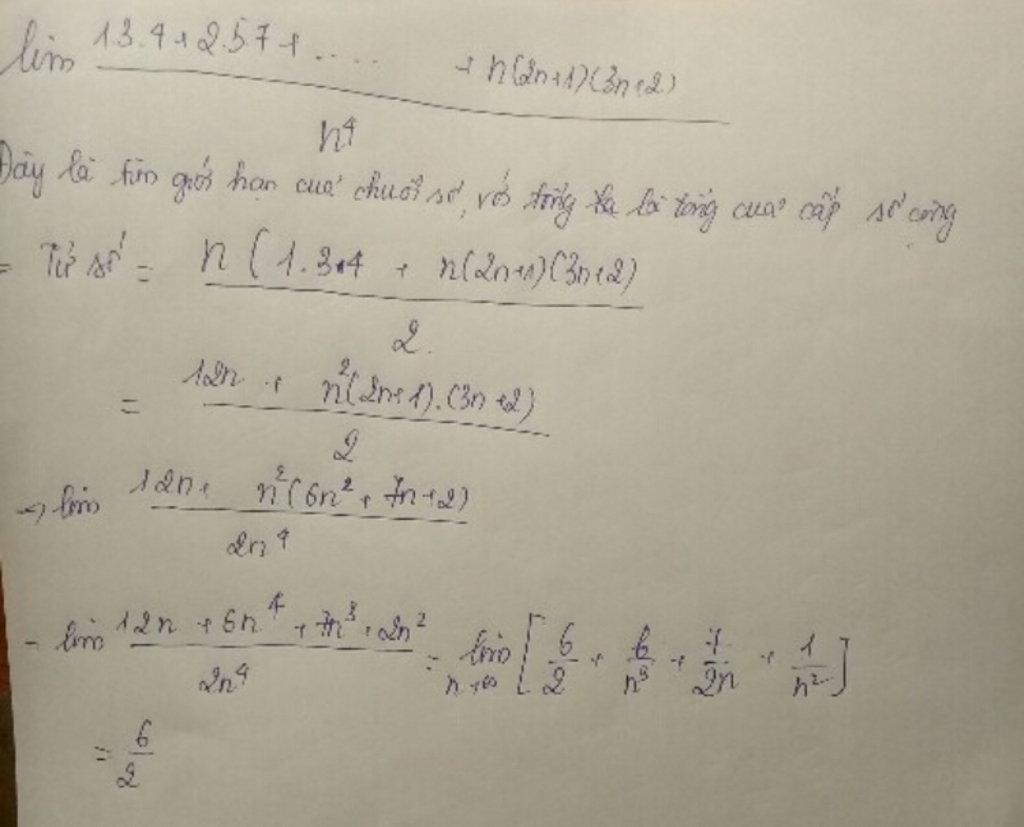 lim (1.3.4 + 2.5.7 + .... + n(2n+1)(3n+2)) / n⁴
Đây là tìm giới hạn của chuỗi số, với tổng là tổng của cấp số cộng
= Tử số = n(1.3.4 + n(2n+1)(3n+2) / 2
= (12n + n²(2n+1).(3n+2)) / 2
→ lim (12n + n²(6n² + 7n + 2)) / 2n⁴
= lim (12n + 6n⁴ + 7n³ + 2n²) / 2n⁴ = lim n→∞ [6/2 + 6/n³ + 7/2n + 1/n²]
= 6/2